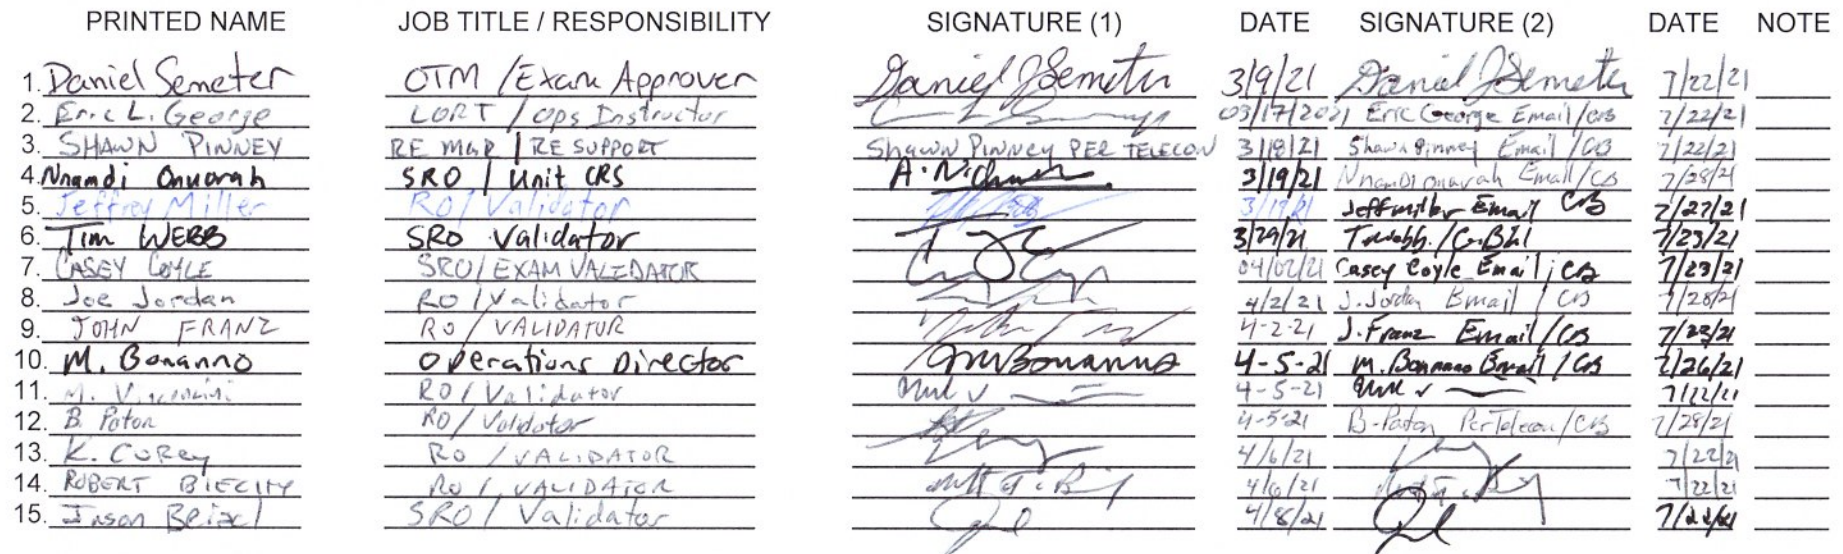 PRINTED NAME JOB TITLE / RESPONSIBILITY SIGNATURE (1) DATE SIGNATURE (2) DATE NOTE
1. Daniel Semeter OTM / Exam Approver Daniel J Semeter 3/9/21 Daniel J Semeter 7/22/21
2. Eric L. George LORT / Ops Instructor 03/17/2021 Eric George Email/CB 7/22/21
3. SHAWN PINNEY RE MGR / RE SUPPORT Shawn Pinney PER TELECON 3/18/21 Shawn Pinney Email /CB 7/22/21
4. Nnamdi Onuorah SRO / Unit CRS 3/19/21 Email/CB 7/28/21
5. Jeffrey Miller RO/Validator 3/17/21 Jeff miller Email CB 7/27/21
6. Tim WEBB SRO Validator 3/29/21 7/23/21
7. CASEY COYLE SRO/EXAM VALIDATOR 04/02/21 Casey Coyle Email / CB 7/23/21
8. Joe Jordan RO / Validator 4/2/21 J. Jordan Email / CB 7/28/21
9. JOHN FRANZ RO / VALIDATOR 4-2-21 J. Franz Email /CB 7/23/21
10. M. Bonanno Operations Director MBonanno 4-5-21 M. Bonanno Email / CB 7/26/21
11. M. RO / Validator 4-5-21 7/22/21
12. B. Paton RO / Validator 4-5-21 B. Paton Per Telecon/CB 7/28/21
13. K. COREY RO / VALIDATOR 4/6/21 7/22/21
14. ROBERT RO / VALIDATOR 4/6/21 7/22/21
15. Jason SRO / Validator 4/8/21 7/22/21